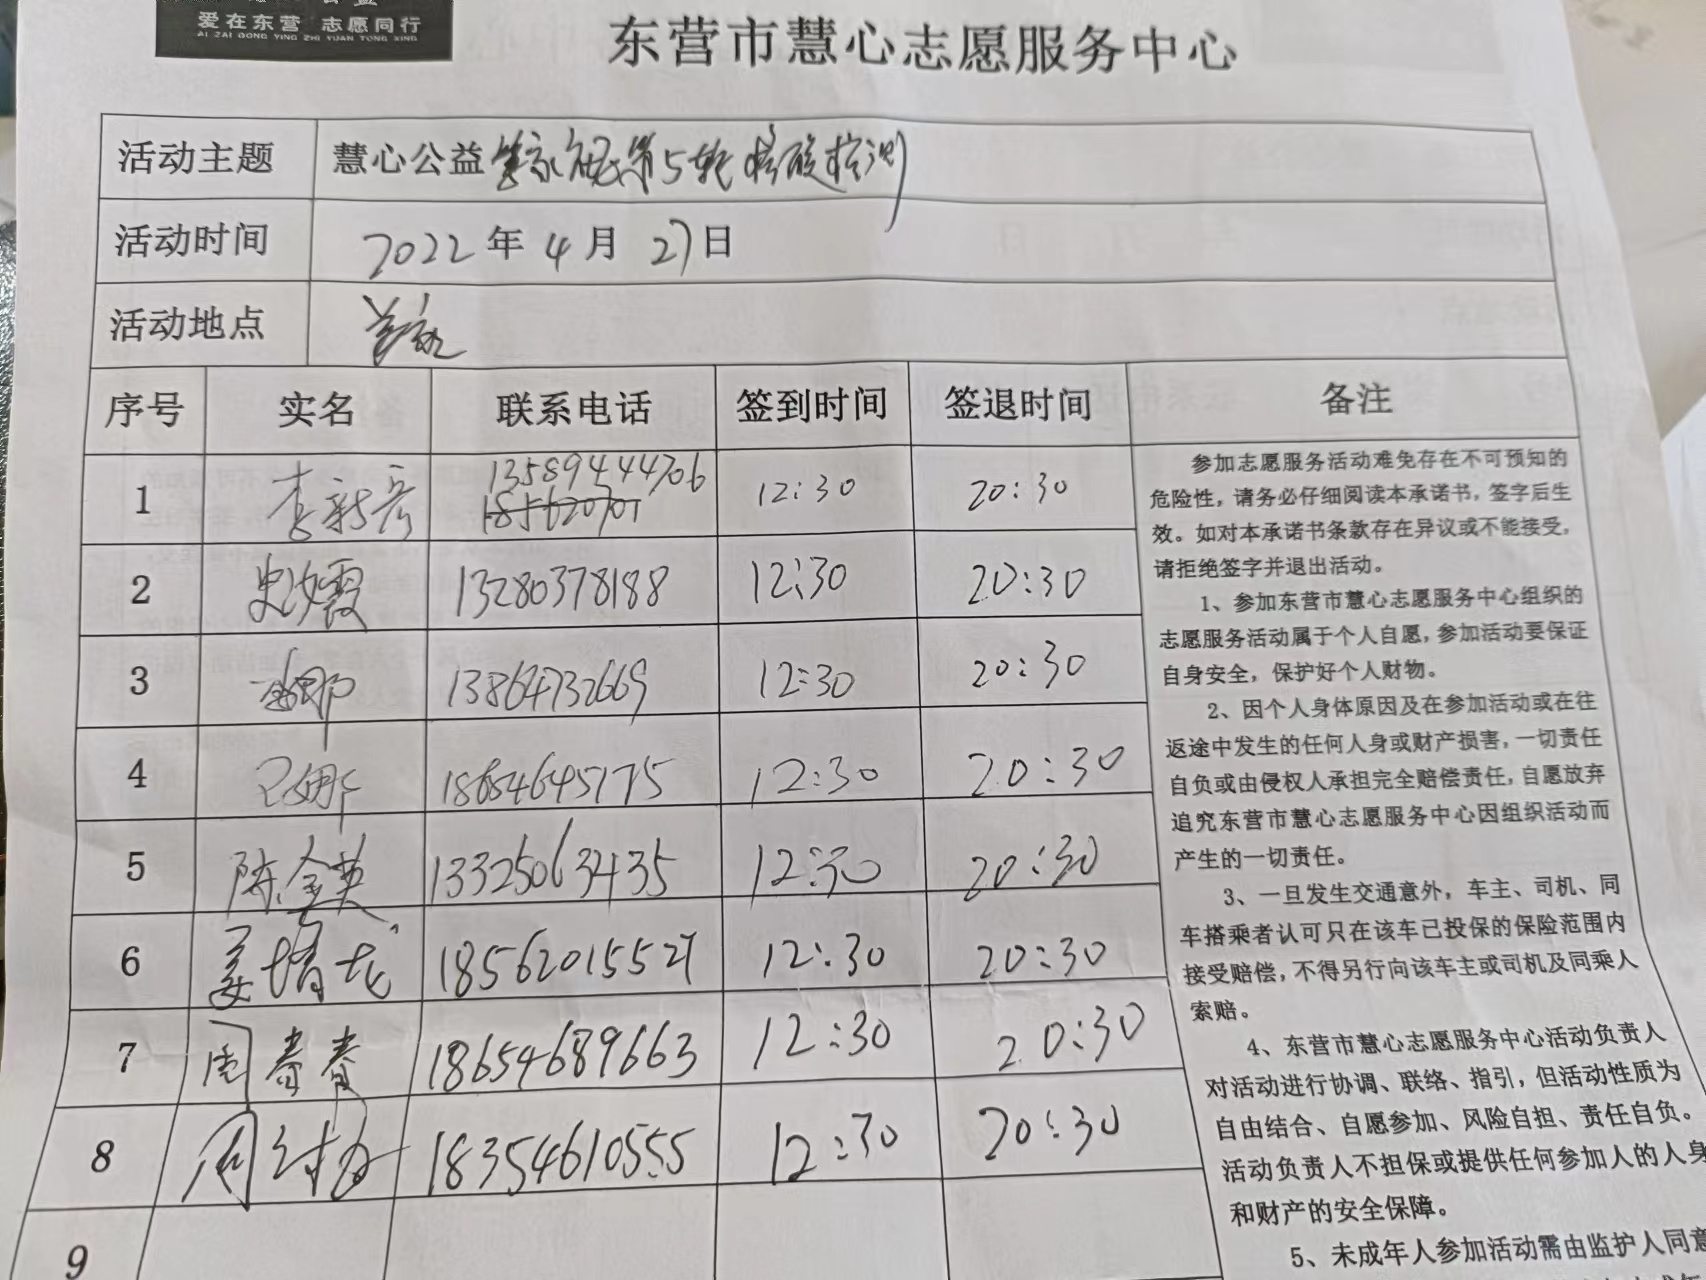 爱在东营 志愿同行
AI ZAI DONG YING ZHI YUAN TONG XING
东营市慧心志愿服务中心
活动主题 慧心公益 第5轮核酸检测
活动时间 2022年4月27日
活动地点
序号 实名 联系电话 签到时间 签退时间 备注
1 李新彦 13589444706 12:30 20:30
185620701
2 史汝霞 13280378188 12:30 20:30
3 13864732669 12:30 20:30
4 18654645775 12:30 20:30
5 陈金英 13325063435 12:30 20:30
6 姜培龙 18562015527 12:30 20:30
7 周春春 18654689663 12:30 20:30
8 周 18354610555 12:30 20:30
9
参加志愿服务活动难免存在不可预知的
危险性，请务必仔细阅读本承诺书，签字后生
效。如对本承诺书条款存在异议或不能接受，
请拒绝签字并退出活动。
1、参加东营市慧心志愿服务中心组织的
志愿服务活动属于个人自愿，参加活动要保证
自身安全，保护好个人财物。
2、因个人身体原因及在参加活动或在往
返途中发生的任何人身或财产损害，一切责任
自负或由侵权人承担完全赔偿责任，自愿放弃
追究东营市慧心志愿服务中心因组织活动而
产生的一切责任。
3、一旦发生交通意外，车主、司机、同
车搭乘者认可只在该车已投保的保险范围内
接受赔偿，不得另行向该车主或司机及同乘人
索赔。
4、东营市慧心志愿服务中心活动负责人
对活动进行协调、联络、指引，但活动性质为
自由结合、自愿参加、风险自担、责任自负。
活动负责人不担保或提供任何参加人的人身
和财产的安全保障。
5、未成年人参加活动需由监护人同意